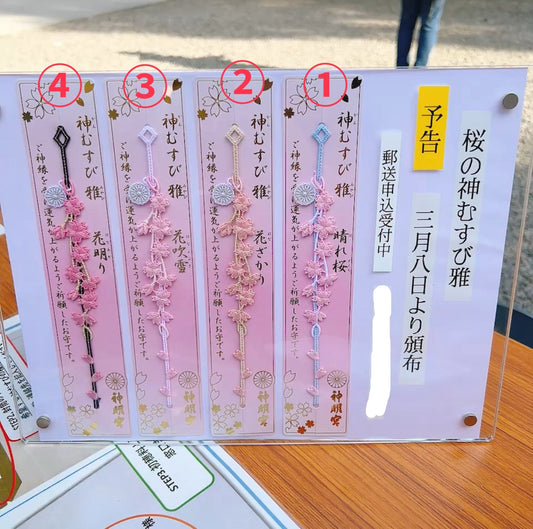 桜の神むすび雅
予告
三月八日より頒布
郵送申込受付中
①
神むすび 雅
晴れ桜
ご神縁をむすび運気が上がるようご祈願したお守です。
神明宮
②
神むすび 雅
花ざかり
運気が上がるようご祈願したお守です。
神明宮
③
神むすび 雅
花吹雪
運気が上がるようご祈願したお守です。
神明宮
④
神むすび 雅
花明り
運気が上がるようご祈願したお守です。
神明宮
STEP3.初穂料